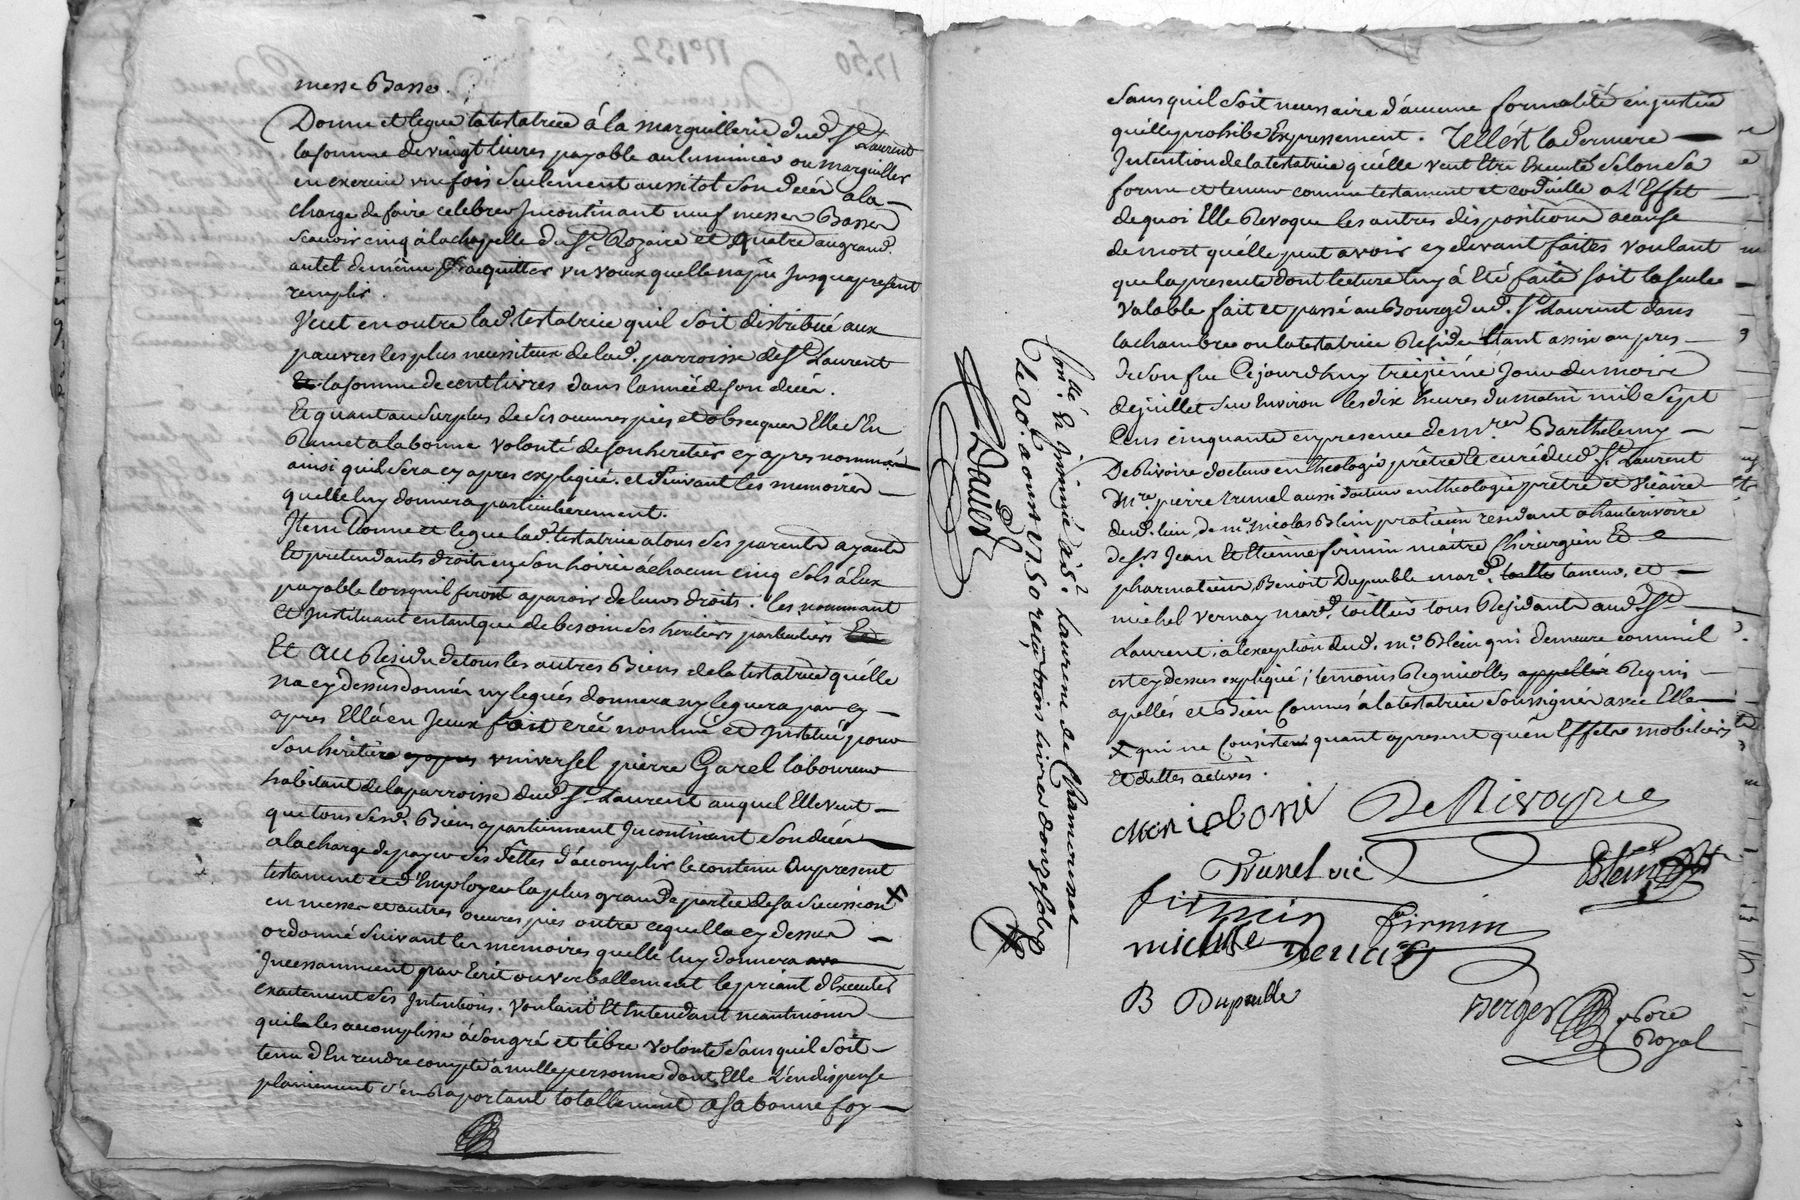 messe Basse.
Donne et legue la testatrice á la marguillerie dud. St. Laurent
la somme de vingt livres payable au luminier ou marguiller
en exercice une fois seulement aussitot son décéz a la
charge de faire celebrer Incontinant neuf messes Basses
scavoir cinq á la chapelle du St. Rozaire et quatre au grand
autel de même d'acquitter un voeux quelle na pû Jusqua present
remplir.
Veut en outre lad. testatrice quil soit distribué aux
pauvres les plus necessiteux de lad. parroisse de St. Laurent
la somme de cent livres dans lannée de son décéz.
Et quant au surplus de ses oeuvres pies et obseques Elle s'En
Remet a la bonne volonté de son heretier cy apres nommé
ainsi quil sera cy apres expliqué. et suivant les memoires
quelle luy donnera particulierement.
Item Donne et legue lad. testatrice a tous ses parents ayants
et pretendants droits en son hoirie á chacun cinq sols á Eux
payable lorsquil feront aparoir de leurs droits. les nommant
et Instituant en tant que de besoin ses heritiers particuliers
Et au Residu de tous les autres Biens de la testatrice quélle
na cy dessus donnés ny legués donnera ny leguera par cy
apres Ella en Jceux fait creé nommé et Institué pour
son heritier universel pierre Garel laboureur
habitant de la parroisse dud. St. Laurent auquel Elle veut
que tous sesd. Biens apartiennent Incontinant son décéz
a la charge de payer ses dettes d'accomplir le contenu du present
testament et d'Employer la plus grande partie de sa succession X
en messes et autres oeuvres pies outre ce quella cy dessus
ordonné suivant les memoires quelle luy donnera
Incessamment par Ecrit ou verballement le priant d'Executer
exactement ses Intentions. voulant Et Entendant neantmoins
quil les accomplisse á son gré et libre volonté sans quil soit
tenu d'En rendre compte á nulle personne dont Elle L'en dispense
plainement s'en Raportant totallement a sa bonne foy
sans quil soit necessaire d'aucune formalité en justice
quélle prohibe Expressement. Telle ést la derniere
Intention de la testatrice quélle veut Etre Executé selon sa
forme et teneur comme testament et codicille a L'Effet
de quoi Elle Revoque les autres dispositions a cause
de mort quelle peut avoir cy devant faites voulant
que la presente dont lecture luy á Eté faite soit la seule
valable fait et passé au Bourg dud. St. Laurent dans
la chambre ou la testatrice Reside Etant assise au pres
de son feu Ce jourdhuy treiziéme Jour du mois
de juillet sur Environ les dix heures du matin mil sept
Cens cinquante en presence de mre. Barthelemy
De Rivoire docteur en theologie prêtre et curé dud. St. Laurent
Mre. pierre trunel aussi docteur en theologie prêtre et vicaire
dud. lieu, de me. nicolas Blein praticien residant a hauterivoire
de srs. Jean Et Etienne firmin maître Chirurgien Et
pharmatien Benoit Dupeuble mard. taneur, et
michel vernay mard. toillier tous Residants aud. St.
Laurent, a l'exeption dud. me. Blein qui demeure comme il
est cy dessus expliqué; temoins Regnicolles Requis
apellés et Bien Connus á la testatrice soussignés avec Elle
X qui ne Consistent quant apresent quén Effets mobiliers
Et dettes actives.
De Rivoyre
Trunel vic
Blein
firmin
firmin
B Dupeuble
Berger
Nore
Royal
Conllé Et Insinué á St. Laurent de Chamousset
le 10e. aout 1750 reçu trois livres douze sols
Dauer